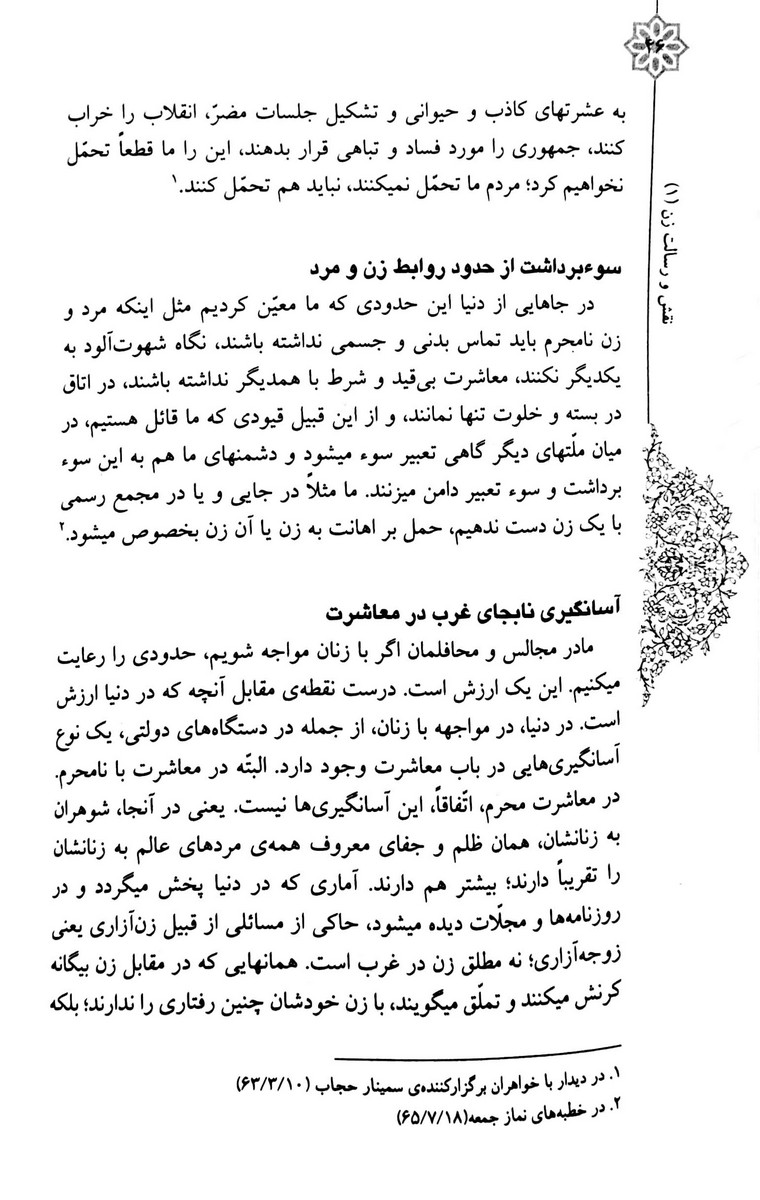 ۴۶
نقش و رسالت زن (۱)
به عشرتهای کاذب و حیوانی و تشکیل جلسات مضرّ، انقلاب را خراب
کنند، جمهوری را مورد فساد و تباهی قرار بدهند، این را ما قطعاً تحمّل
نخواهیم کرد؛ مردم ما تحمّل نمیکنند، نباید هم تحمّل کنند.۱
سوءبرداشت از حدود روابط زن و مرد
در جاهایی از دنیا این حدودی که ما معیّن کردیم مثل اینکه مرد و
زن نامحرم باید تماس بدنی و جسمی نداشته باشند، نگاه شهوت‌آلود به
یکدیگر نکنند، معاشرت بی‌قید و شرط با همدیگر نداشته باشند، در اتاق
در بسته و خلوت تنها نمانند، و از این قبیل قیودی که ما قائل هستیم، در
میان ملّتهای دیگر گاهی تعبیر سوء میشود و دشمنهای ما هم به این سوء
برداشت و سوء تعبیر دامن میزنند. ما مثلاً در جایی و یا در مجمع رسمی
با یک زن دست ندهیم، حمل بر اهانت به زن یا آن زن بخصوص میشود.۲
آسانگیری نابجای غرب در معاشرت
مادر مجالس و محافلمان اگر با زنان مواجه شویم، حدودی را رعایت
میکنیم. این یک ارزش است. درست نقطه‌ی مقابل آنچه که در دنیا ارزش
است. در دنیا، در مواجهه با زنان، از جمله در دستگاه‌های دولتی، یک نوع
آسانگیری‌هایی در باب معاشرت وجود دارد. البتّه در معاشرت با نامحرم.
در معاشرت محرم، اتّفاقاً، این آسانگیری‌ها نیست. یعنی در آنجا، شوهران
به زنانشان، همان ظلم و جفای معروف همه‌ی مردهای عالم به زنانشان
را تقریباً دارند؛ بیشتر هم دارند. آماری که در دنیا پخش میگردد و در
روزنامه‌ها و مجلّات دیده میشود، حاکی از مسائلی از قبیل زن‌آزاری یعنی
زوجه‌آزاری؛ نه مطلق زن در غرب است. همانهایی که در مقابل زن بیگانه
کرنش میکنند و تملّق میگویند، با زن خودشان چنین رفتاری را ندارند؛ بلکه
۱. در دیدار با خواهران برگزارکننده‌ی سمینار حجاب (۶۳/۳/۱۰)
۲. در خطبه‌های نماز جمعه(۶۵/۷/۱۸)